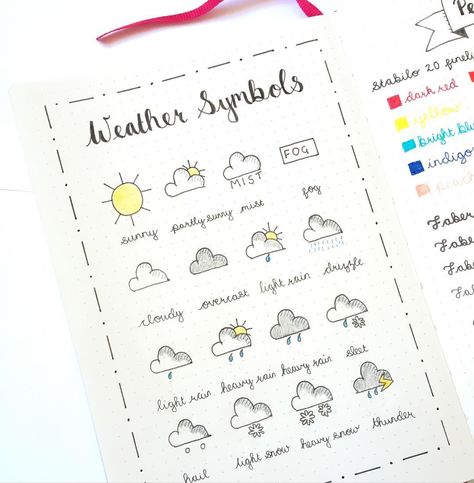 Weather Symbols
MIST FOG
sunny partly sunny mist fog
cloudy overcast light rain drizzle
light rain heavy rain heavy rain sleet
hail light snow heavy snow thunder
Pe
Stabilo 20 fineli
dark red
yellow
bright blu
indigo
peach
Faber
Faber
Faber
Faber